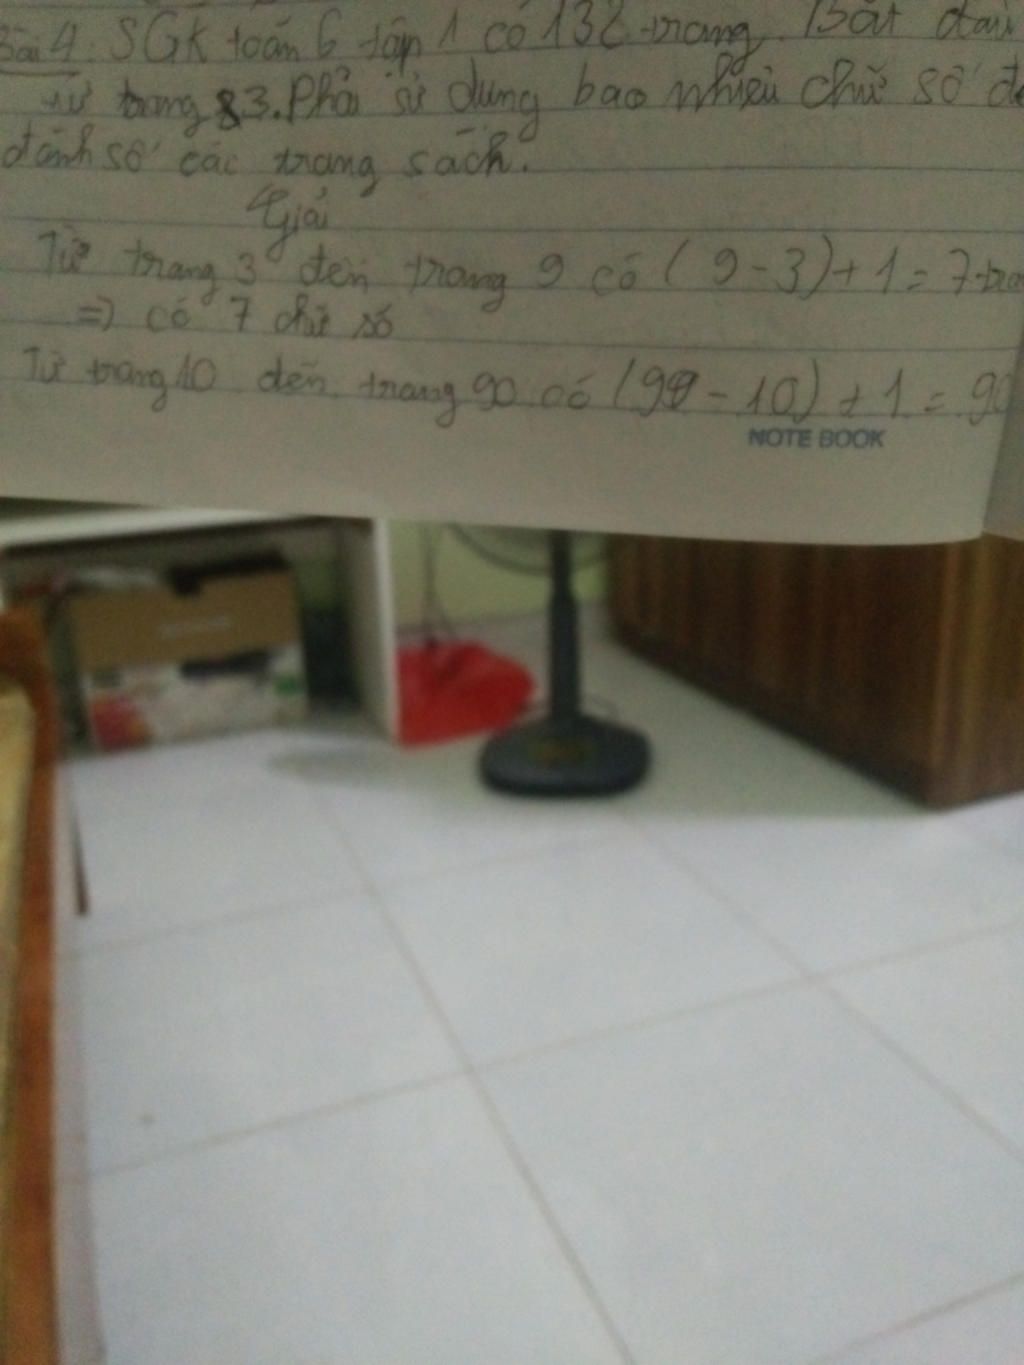 Bài 4: SGK toán 6 tập 1 có 132 trang. Bắt đầu
từ trang 3. Phải sử dụng bao nhiêu chữ số để
đánh số các trang sách.
Giải
Từ trang 3 đến trang 9 có (9-3)+1=7 tra
=> có 7 chữ số
Từ trang 10 đến trang 90 có (99-10)+1=90
NOTE BOOK